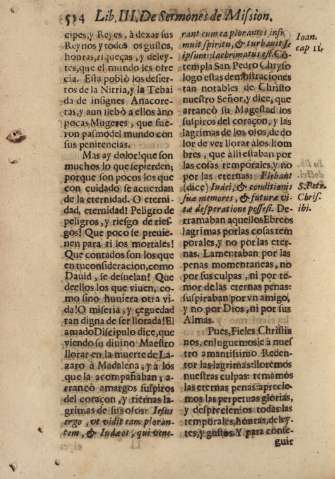 514 Lib. III. De Sermones de Mission.
cipes, y Reyes, à dexar sus
Reynos y todos os gustos,
honras, riqueças, y deley-
tes, que el mundo les ofre
cia. Esta poblò los desier-
tos de la Nitria, y la Tebai
da de insignes Anacore-
ras, y aun llebò a ellos àno
pocas Mugeres, que fue-
ron pasmo del mundo con
sus penitencias.
Mas ay dolor! que son
muchos lo que se pierden,
porque son pocos los que
con cuidado se acuerdan
de la eternidad. O eterni-
dad, eternidad! Peligro de
peligros, y riesgo de ries-
gos! Que poco se previe-
nen para ti los mortales!
Que contados son los que
en tu consideracion, como
Dauid, se desuelan! Que
dellos los que viuen, co-
mo si no huuiera otra vi-
da! O miseria, y ceguedad
tan digna de ser llorada! El
amado Discipulo dice, que
viendo su diuino Maestro
llorar en la muerte de La-
zaro à Madalena, y a los
que la acompañaban, a-
rrancò amargos suspiros
del coraçon, y tiernas la-
grimas de sus ojos: Iesus
ergo, ut vidit eam ploran-
tem, & Iudæos, qui vene-
rant cum ea plorantes infre
muit spiritu, & turbauit se
ipsum: lacrymatus est. Co-
templa San Pedro Chryso
logo estas demostraciones
tan notables de Christo
nuestro Señor, y dice, que
arrancò su Magestad los
suspiros del coraçon, y las
lagrimas de los ojos, de do
lor de ver llorar à los hom
bres, que alli estaban por
las cosas temporales, y no
por las eternas: Flebant
(dice) Iudæi, & conditionis
suæ memores, & futuræ vi-
tæ desperatione possessi. De-
rramaban aquellos Ebreos
lagrimas por las cosas tem
porales, y no por las eter-
nas. Lamentaban por las
penas momentaneas, no
por sus culpas, ni por te-
mor de las eternas penas:
suspiraban por vn amigo,
y no por Dios, ni por sus
Almas.
Pues, Fieles Christia
nos, enluguemosle a nues-
tro amantisimo Reden-
tor las lagrimas: lloremos
nuestras culpas: temamos
las eternas penas: aprecie-
mos las perpetuas glorias,
y despreciemos todas las
temporales, honras, deley-
tes, y gustos. Y para conse-
guir
Ioan.
cap 11.
S. Petr.
Chris.
ibi.